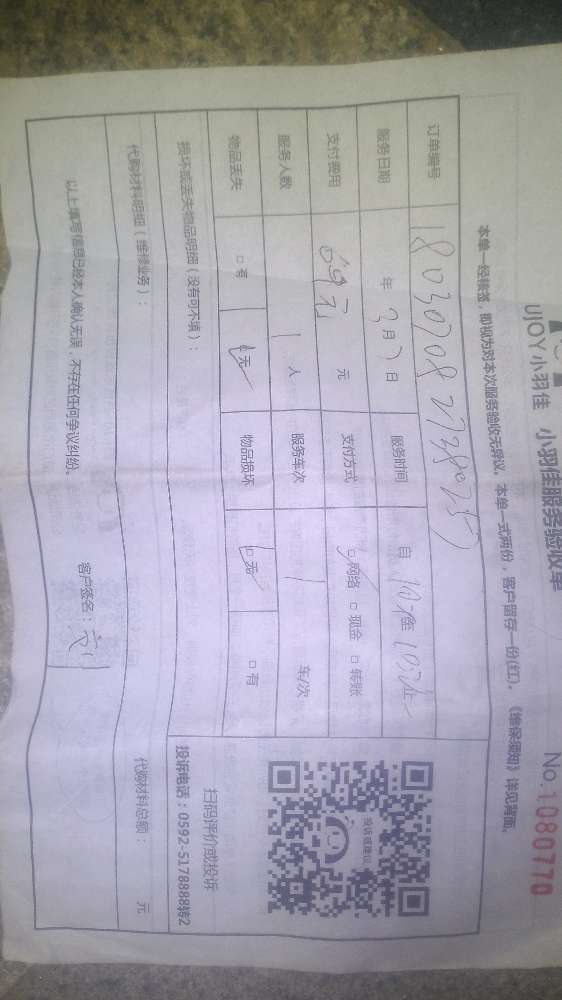 UJOY小羽佳 小羽佳服务验收单 No.1080770
本单一经核签，即视为对本次服务验收无异议。本单一式两份，客户留存一份(红)。《维保须知》详见背面。
订单编号
服务日期 年 3月 日 服务时间 自 10 准
支付费用 69元 元 支付方式 □网络 □现金 □转账
服务人数 1 人 服务车次 1 车/次
物品丢失 □有 □无 物品损坏 □无 □有
损坏或丢失物品明细（没有可不填）：
代购材料明细（维修业务）： 代购材料总额： 元
以上填写信息已经本人确认无误，不存在任何争议纠纷。 客户签名：
投诉或建议
扫码评价或投诉
投诉电话：0592-5178888转2